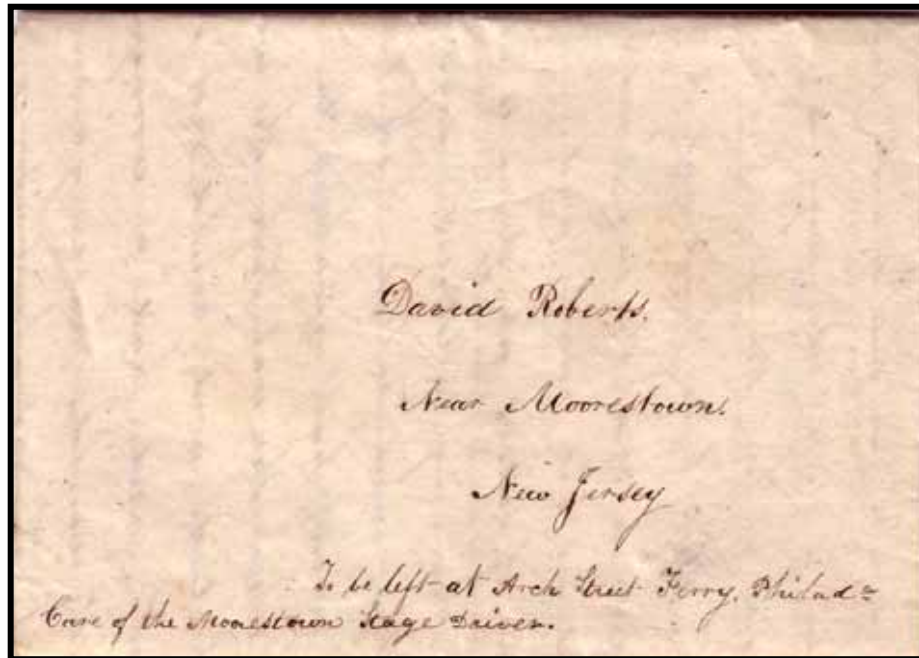 David Roberts.
Near Moorestown.
New Jersey
To be left at Arch Street Ferry. Philada
Care of the Moorestown Stage Driver.